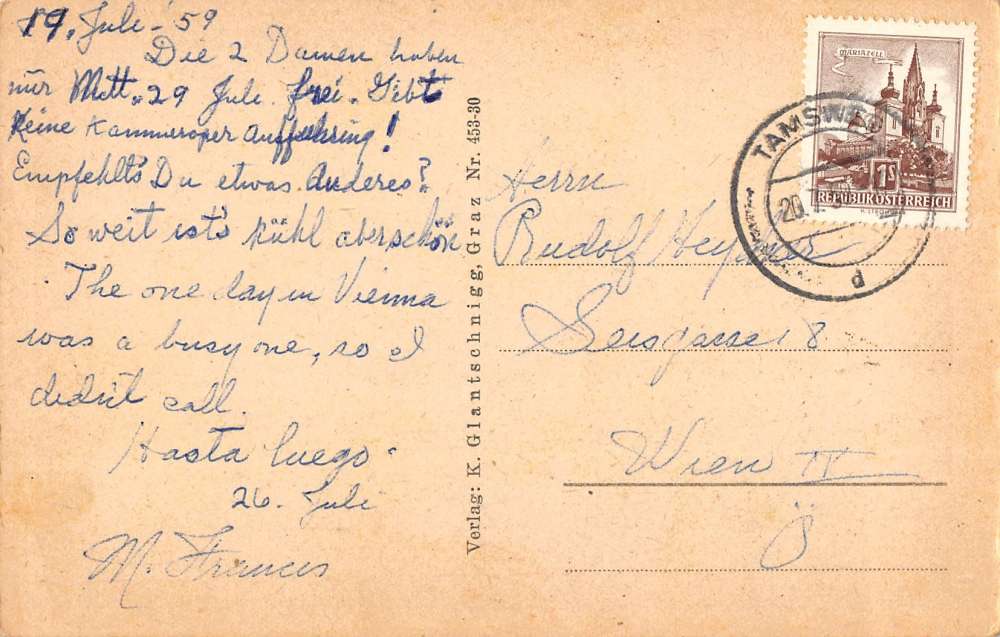 19. Juli '59
Die 2 Damen haben
nur Mitt. 29 Juli frei. Gibt
Keine Kammeroper Aufführing!
Empfehlts Du etwas Anderes?
So weit ist's kühl aber schön
The one day in Vienna
was a busy one, so I
didn't call.
Hasta luego
26. Juli
M. Frances
Verlag: K. Glantschnigg, Graz Nr. 453-30
MARIAZELL
1S
REPUBLIK ÖSTERREICH
TAMSWEG
20.
d
Herrn
Rudolf
8
Wien IV
Ö